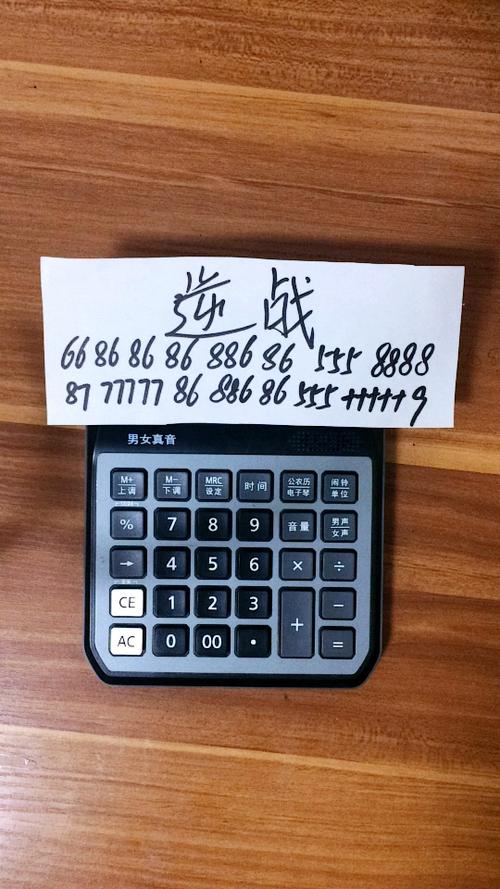 逆战
66 86 86 86 886 86 555 8888
87 77777 86 886 86 555 +++++ 9
男女真音
M+ 上调 M- 下调 MRC 设定 时间 公农历 电子琴 闹钟 单位
% 7 8 9 音量 男声 女声
→ 4 5 6 × ÷
CE 1 2 3 + −
AC 0 00 • =